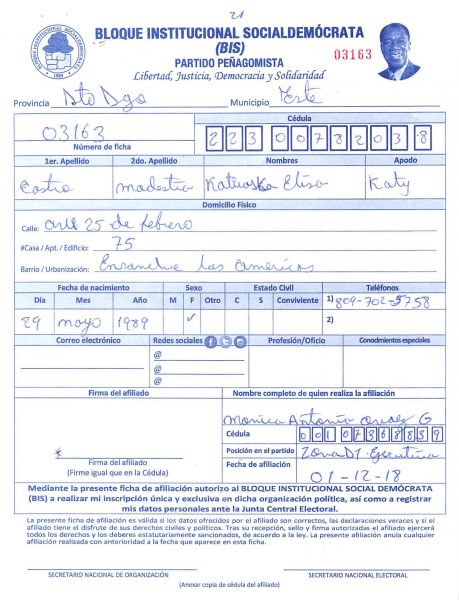 21
BLOQUE INSTITUCIONAL SOCIALDEMÓCRATA
(BIS)
PARTIDO PEÑAGOMISTA
Libertad, Justicia, Democracia y Solidaridad
03163
Provincia Sto Dgo Municipio Este
03163
Número de ficha
Cédula
223 0078203 8
1er. Apellido 2do. Apellido Nombres Apodo
Castro Modestia Katiuska Elisa Katy
Domicilio Físico
Calle: 25 de febrero
#Casa / Apt. / Edificio: 75
Barrio / Urbanización: Ensanche Las Americas
Fecha de nacimiento Sexo Estado Civil Teléfonos
Día Mes Año M F Otro C S Conviviente 1) 809-702-5758
29 mayo 1989 ✓ 2)
Correo electrónico Redes sociales Profesión/Oficio Conocimientos especiales
@
@
@
Firma del afiliado Nombre completo de quien realiza la afiliación
Monica Antonia G
Cédula 001 0736883 9
Posición en el partido Zona D1 Ejecutiva
*
Firma del afiliado
(Firme igual que en la Cédula)
Fecha de afiliación 01-12-18
Mediante la presente ficha de afiliación autorizo al BLOQUE INSTITUCIONAL SOCIAL DEMÓCRATA
(BIS) a realizar mi inscripción única y exclusiva en dicha organización política, así como a registrar
mis datos personales ante la Junta Central Electoral.
La presente ficha de afiliación es válida si los datos ofrecidos por el afiliado son correctos, las declaraciones veraces y si el
afiliado tiene el disfrute de sus derechos civiles y políticos. Tras su recepción, sello y firma autorizados el afiliado ejercerá
todos los derechos y los deberes estatutariamente sancionados, de acuerdo a la ley. La presente afiliación anula cualquier
afiliación realizada con anterioridad a la fecha que aparece en esta ficha.
SECRETARIO NACIONAL DE ORGANIZACIÓN SECRETARIO NACIONAL ELECTORAL
(Anexar copia de cédula del afiliado)